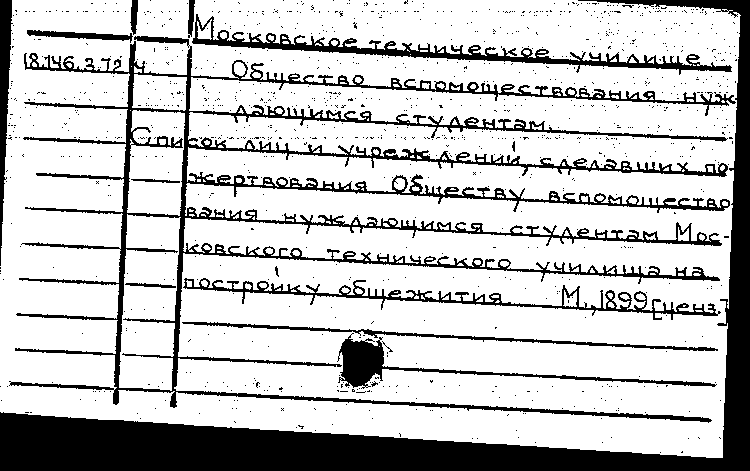 Московское техническое училище.
18.146.3.72 ч. Общество вспомоществования нуж
дающимся студентам.
Список лиц и учреждений, сделавших по-
жертвования Обществу вспомощество-
вания нуждающимся студентам Мос-
ковского технического училища на
постройку общежития. М., 1899 [ценз.]